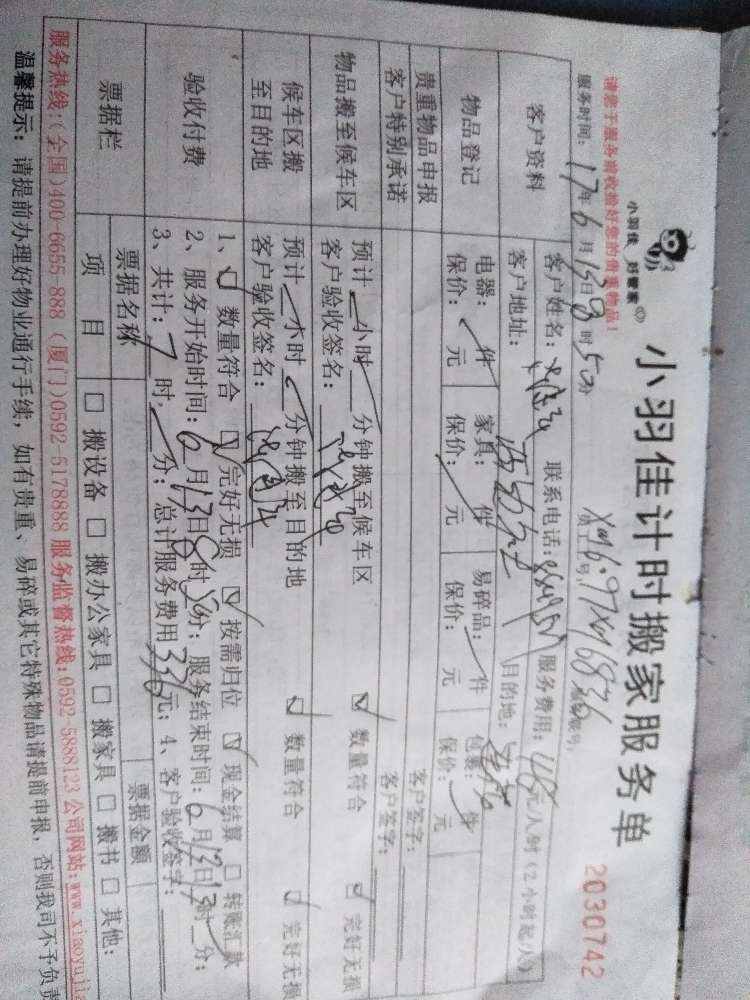 小羽佳计时搬家服务单
2030742
小羽佳 好管家
请您于服务前收拾好您的贵重物品！
服务时间：17年6月13日8时50分
客户资料
客户姓名： 联系电话： 服务费用： 元/人/时（2小时起/人）
客户地址： 目的地：
物品登记
电器： 件 家具： 件 易碎品： 件 包裹： 件
保价： 元 保价： 元 保价： 元 保价： 元
贵重物品申报 客户签字：
客户特别承诺 客户签字：
物品搬至候车区
预计 小时 分钟搬至候车区 数量符合 完好无损
客户验收签名：
候车区搬至目的地
预计 小时 分钟搬至目的地 数量符合 完好无损
客户验收签名：
验收付费
1、 数量符合 完好无损 按需归位 现金结算 □ 转账汇款
2、服务开始时间：6月13日8时50分；服务结束时间：6月13日 时 分；
3、共计：7时 分；总计服务费用336元；4、客户验收签字：
票据栏
票据名称 票据金额
项目 □ 搬设备 □ 搬办公家具 □ 搬家具 □ 搬书 □ 其他：
服务热线：(全国)400-6655-888 (厦门)0592-5178888 服务监督热线：0592-5888123 公司网站：www.xiaoyujia
温馨提示：请提前办理好物业通行手续，如有贵重、易碎或其它特殊物品请提前申报，否则我司不予负责